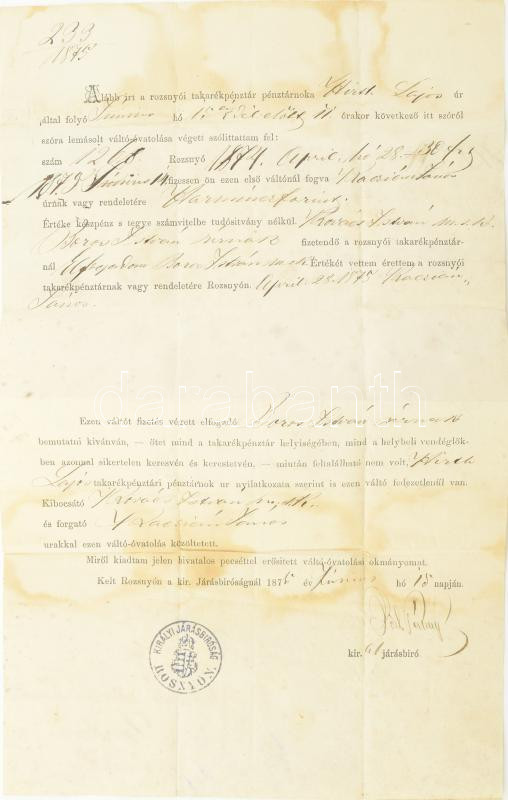 233
1875
Alább irt a rozsnyói takarékpénztár pénztárnoka Hirth Lajos úr
által folyó Junius hó 15 délelőtt 11 órakor következő itt szóról
szóra lemásolt váltó-óvatolása végett szólíttattam fel:
szám 1208 Rozsnyó 1874. April. hó 28.
1875 Június 14. fizessen ön ezen első váltónál fogva Kacsián János
úrnak vagy rendeletére Harmincz forint.
Értéke készpénz s tegye számvitelbe tudósítvány nélkül. Kovács István
Boros István urnak fizetendő a rozsnyói takarékpénztár-
nál Elfogadom Boros István Értékét vettem érettem a rozsnyói
takarékpénztárnak vagy rendeletére Rozsnyón. April 28. 1875 Kacsián
János.
darabanth
Ezen váltót fizetés végett elfogadó Boros István urnak
bemutatni kívánván, — őtet mind a takarékpénztár helyiségében, mind a helybeli vendéglők-
ben azonnal sikertelen keresvén és kerestetvén, — miután feltalálható nem volt, Hirth
Lajos takarékpénztári pénztárnok ur nyilatkozata szerint is ezen váltó fedezetlenül van.
Kibocsátó Kovács István
és forgató Kacsián János
urakkal ezen váltó-óvatolás közöltetett.
Miről kiadtam jelen hivatalos pecséttel erősitett váltó-óvatolási okmányomat.
Kelt Rozsnyón a kir. Járásbiróságnál 1875 év Június hó 15 napján.
kir. al járásbiró.
KIRÁLYI JÁRÁSBIRÓSÁG
ROSNYÓN.